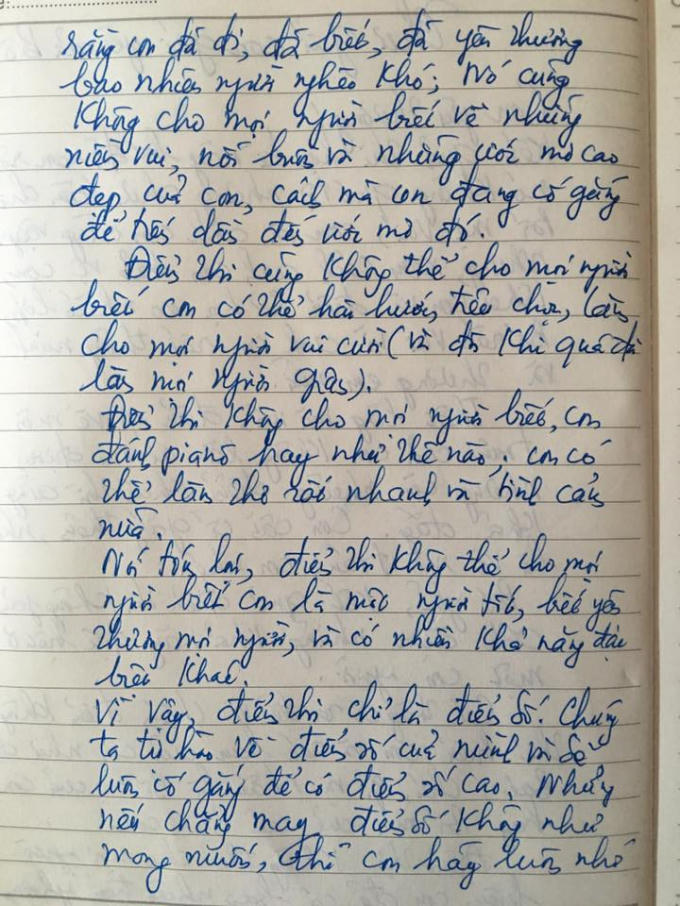 rằng con đã đi, đã biết, đã yêu thương
bao nhiêu người nghèo khó; Nó cũng
Không cho mọi người biết về những
niềm vui, nỗi buồn và những ước mơ cao
đẹp của con, cách mà con đang cố gắng
để tiến dần đến ước mơ đó.
Điểm thi cũng Không thể cho mọi người
biết con có thể hài hước, tếu chọc, làm
cho mọi người vui cười (và đôi Khi quá đà
làm mọi người giận).
Điểm thi Không cho mọi người biết, con
đánh piano hay như thế nào, con có
thể làm thơ rất nhanh và tình cảm
nữa.
Nói tóm lại, điểm thi Không thể cho mọi
người biết con là một người tốt, biết yêu
thương mọi người, và có nhiều Khả năng đặc
biệt Khác.
Vì vậy, điểm thi chỉ là điểm số. Chúng
ta tự hào về điểm số của mình và sẽ
luôn cố gắng để có điểm số cao. Nhưng
nếu chẳng may điểm số Không như
mong muốn, thì con hãy luôn nhớ